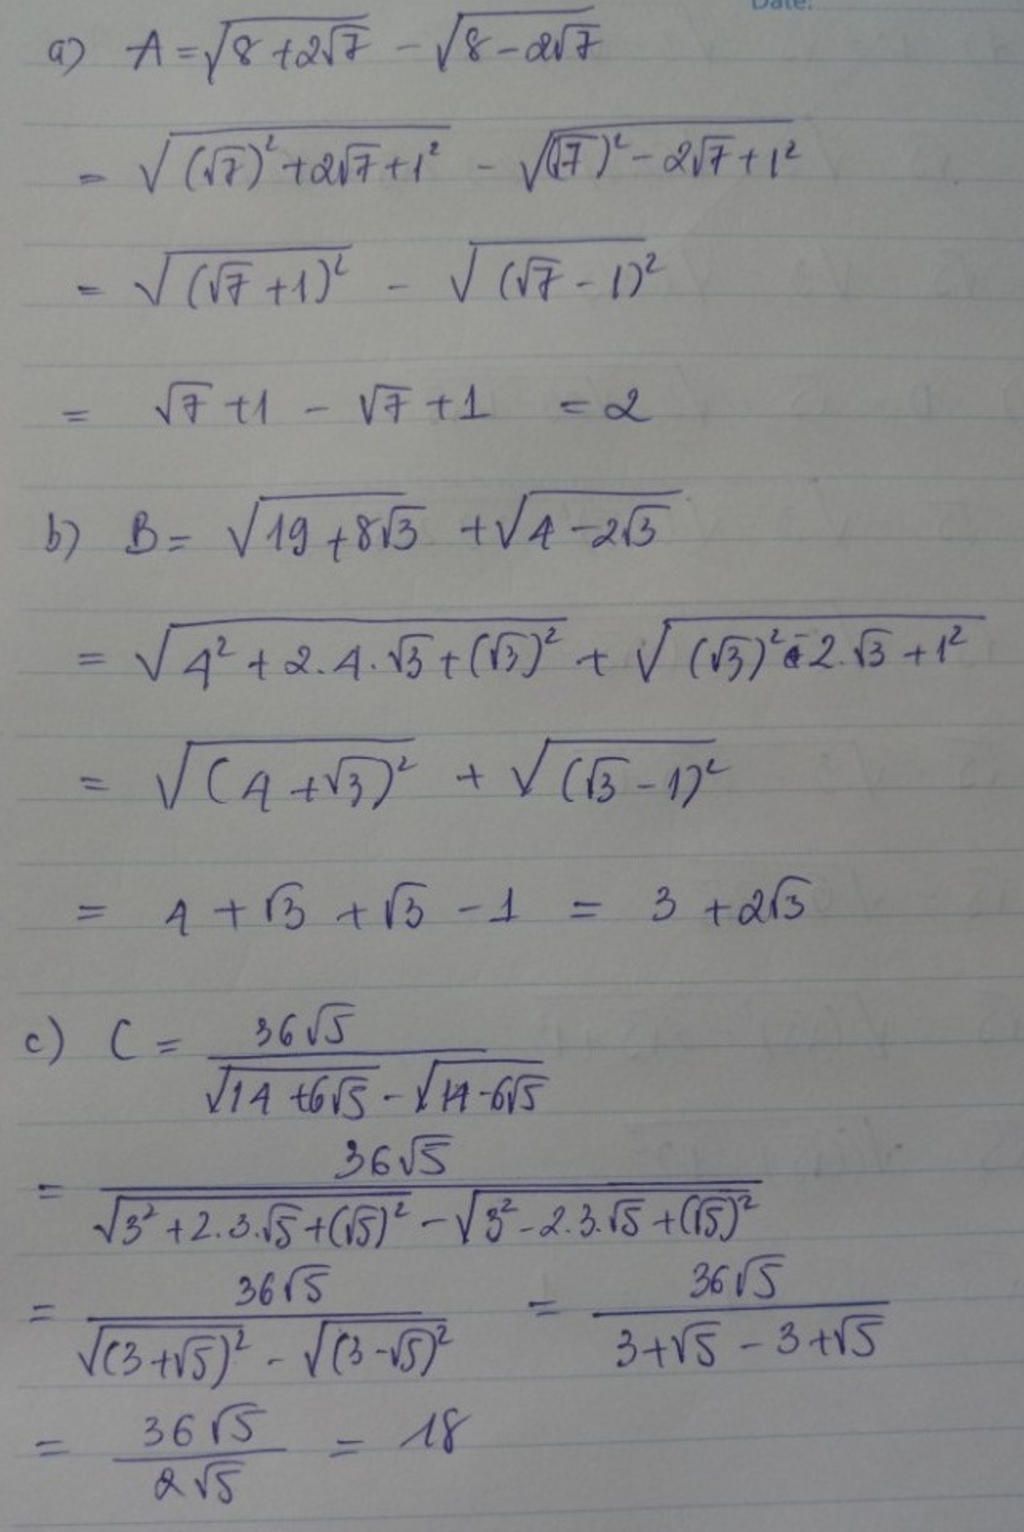 Date:
a) A = √(8 + 2√7) - √(8 - 2√7)
= √((√7)² + 2√7 + 1²) - √((√7)² - 2√7 + 1²)
= √((√7 + 1)²) - √((√7 - 1)²)
= √7 + 1 - √7 + 1 = 2
b) B = √(19 + 8√3) + √(4 - 2√3)
= √(4² + 2.4.√3 + (√3)²) + √((√3)² - 2.√3 + 1²)
= √((4 + √3)²) + √((√3 - 1)²)
= 4 + √3 + √3 - 1 = 3 + 2√3
c) C = 36√5 / (√(14 + 6√5) - √(14 - 6√5))
= 36√5 / (√(3² + 2.3.√5 + (√5)²) - √(3² - 2.3.√5 + (√5)²))
= 36√5 / (√((3 + √5)²) - √((3 - √5)²)) = 36√5 / (3 + √5 - 3 + √5)
= 36√5 / 2√5 = 18